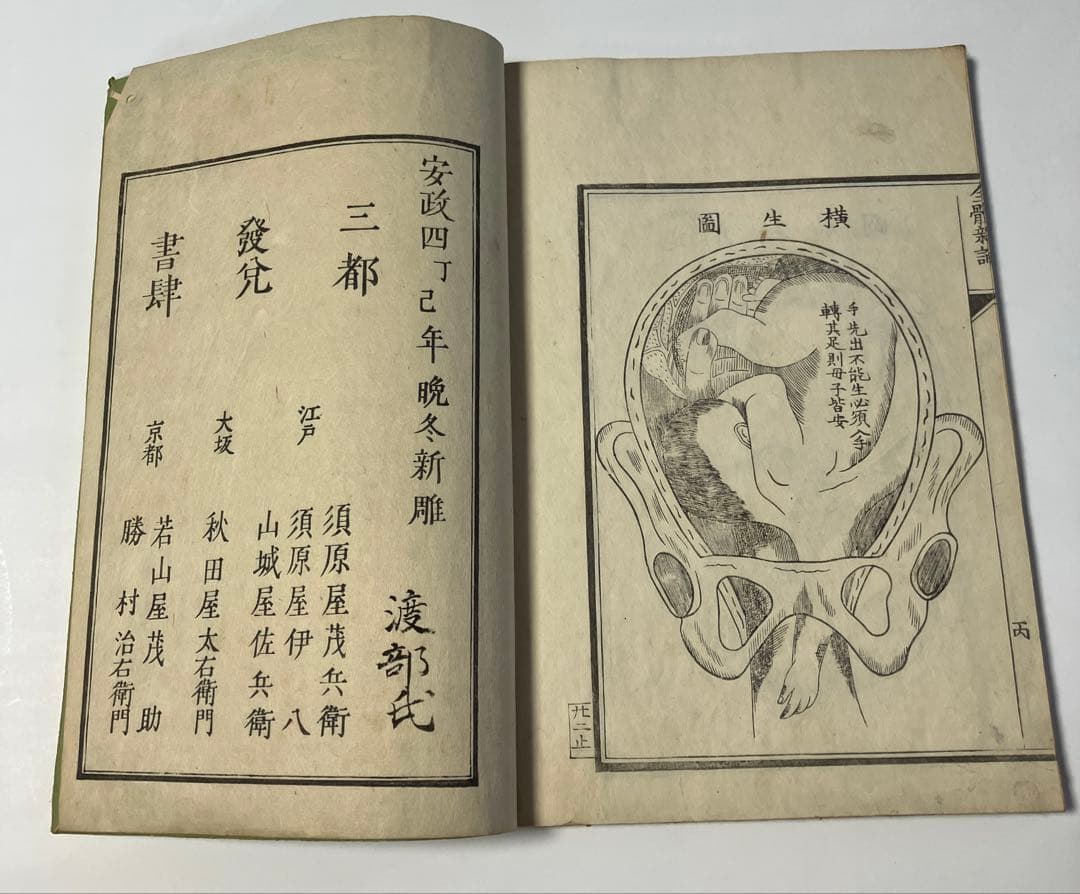 全體新論
丙
橫生圖
手先出不能生必須入手
轉其足則母子皆安
廿二止
安政四丁己年晩冬新雕
三都
發兌
書肆
江戸
須原屋茂兵衛
須原屋伊八
山城屋佐兵衛
大坂
秋田屋太右衛門
京都
若山屋茂助
勝村治右衛門
渡部氏